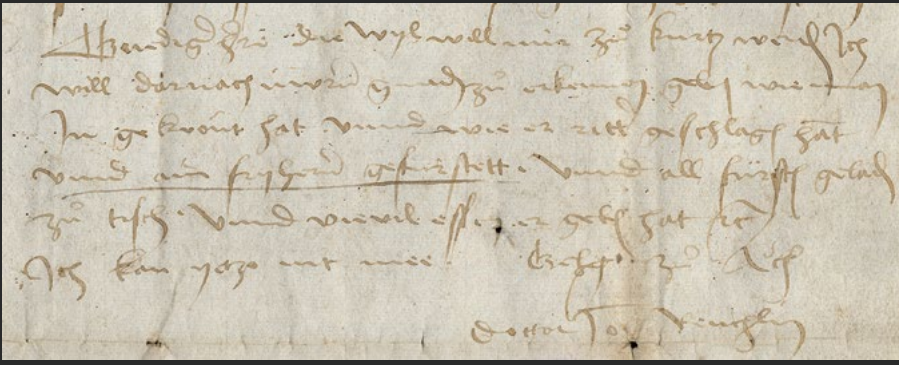 Gnediger h̅re die wyl will mir zů kurtz werd(e)n Ich
will darnach uwrn̄ gnad(e)n zů erkennen geb(e)n wie man
In gekrönt hat Vnnd wie er ritt(er) geschlag(e)n hat
vnnd ain fryhern̄ gefürstett. Vnnd all fürst(e)n gelad(e)n
zů tisch. Vnnd wievil essen er geb(e)n hat rc
Ich kan yetzo nit mee. Geben zů Ach
Doctor Jo. Reuchlin